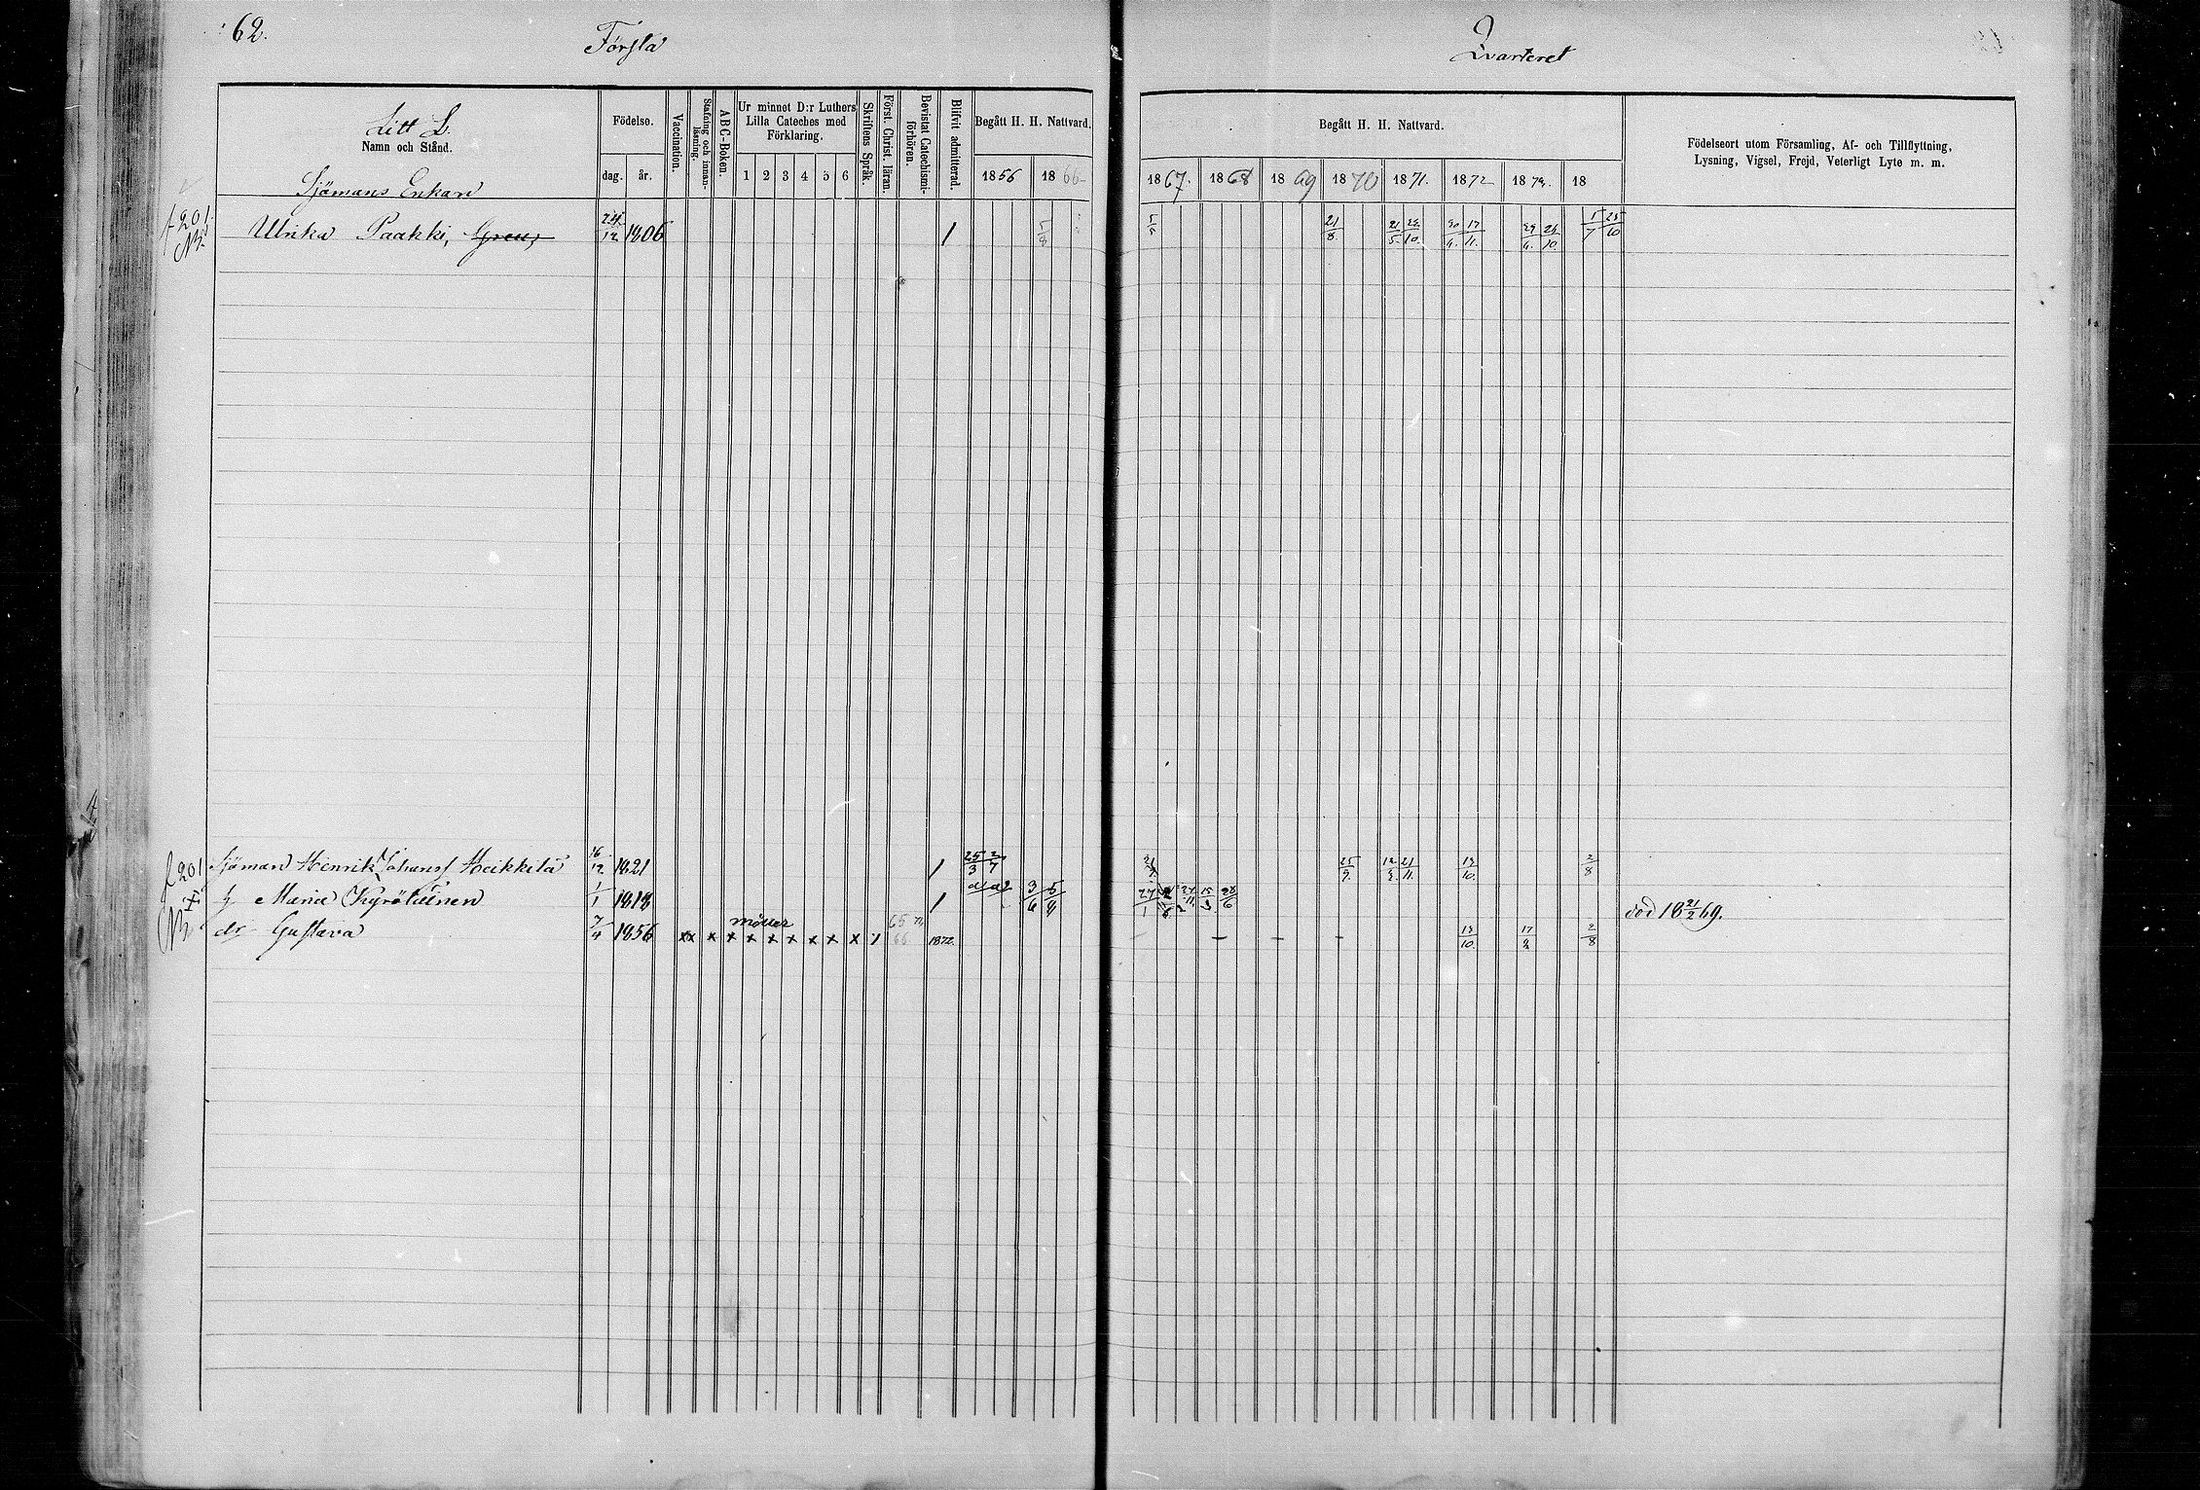 62.
Första
Qvarteret
Litt L.
Namn och Stånd.
Födelse.
dag. år.
Vaccination.
Stafning och innan-läsning.
ABC-Boken.
Ur minnet D:r Luthers Lilla Cateches med Förklaring.
1 2 3 4 5 6
Skriftens Språk.
Först. Christ. läran.
Bevistat Catechismi-förhören.
Blifvit admitterad.
Begått H. H. Nattvard.
1856 1866
Begått H. H. Nattvard.
1867. 1868 1869 1870 1871. 1872 1873. 18
Födelseort utom Församling, Af- och Tillflyttning,
Lysning, Vigsel, Frejd, Veterligt Lyte m. m.
Sjömans Enkan
f 201.
Ulrika Paakki, 24/12 1806 1 5/8 5/5 21/8. 21/5. 22/10. 30/4. 17/11. 29/4. 26/10. 5/7 25/10
f 201
Sjöman Henrik Johansf Heikkilä 16/12 1821 1 25/3 2/7 21/7. 25/9. 21/11. 13/10. 2/8
h Maria Kyröläinen 1/1 1818 1 3/6 5/8 27/1 28/6 död 18 21/2 69.
dr Gustava 7/4 1856 xx x x x x x x x x x 65 66 1872. – – – 13/10. 17/2 2/8